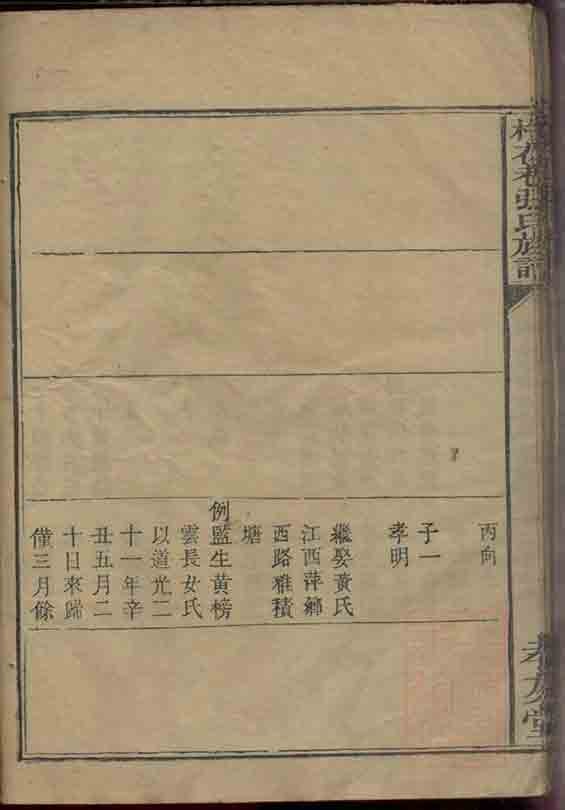 張氏族譜
孝友堂
丙向
子一
孝明
繼娶黃氏
江西萍鄉
西路雅積
塘
例監生黃榜
雲長女氏
以道光二
十一年辛
丑五月二
十日來歸
僅三月餘